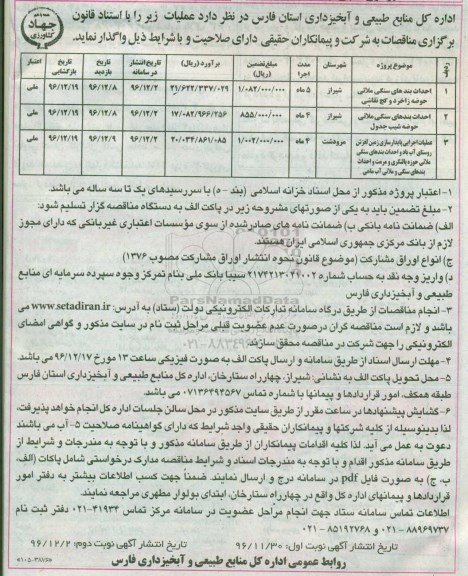 اداره کل منابع طبیعی و آبخیزداری استان فارس در نظر دارد عملیات زیر را با استناد قانون
برگزاری مناقصات به شرکت و پیمانکاران حقیقی دارای صلاحیت و با شرایط ذیل واگذار نماید.
جهاد
کشاورزی
ردیف موضوع پروژه شهرستان مدت اجرا مبلغ تضمین (ریال) برآورد (ریال) تاریخ انتشار در سامانه تاریخ بازدید تاریخ بازگشایی اعتبار
۱ احداث بند های سنگی ملاتی حوضه زاخرد و کچ نقاشی شیراز ۵ ماه ۱/۰۸۲/۰۰۰/۰۰۰ ۲۱/۶۲۲/۳۳۷/۰۲۹ ۹۶/۱۲/۲ ۹۶/۱۲/۸ ۹۶/۱۲/۱۹ ملی
۲ احداث بندهای سنگی ملاتی حوضه شیب جدول شیراز ۴ ماه ۸۵۵/۰۰۰/۰۰۰ ۱۷/۰۸۲/۹۶۶/۲۵۶ ۹۶/۱۲/۲ ۹۶/۱۲/۸ ۹۶/۱۲/۱۹ ملی
۳ عملیات اجرایی پایدارسازی زمین لغزش روستای آب باد و احداث بندهای سنگی ملاتی حوزه پالنگری و مرمت و احداث بندهای سنگی و ملاتی آب ماهی مرودشت ۴ ماه ۱/۰۰۲/۰۰۰/۰۰۰ ۲۰/۰۳۴/۸۶۱/۰۸۵ ۹۶/۱۲/۲ ۹۶/۱۲/۹ ۹۶/۱۲/۱۹ ملی
۱- اعتبار پروژه مذکور از محل اسناد خزانه اسلامی (بند - ه) با سررسیدهای یک تا سه ساله می باشد.
۲- مبلغ تضمین باید به یکی از صورتهای مشروحه زیر در پاکت الف به دستگاه مناقصه گزار تسلیم شود:
الف) ضمانت نامه بانکی ب) ضمانت نامه های صادر شده از سوی مؤسسات اعتباری غیربانکی که دارای مجوز
لازم از بانک مرکزی جمهوری اسلامی ایران هستند.
ج) انواع اوراق مشارکت (موضوع قانون نحوه انتشار اوراق مشارکت مصوب ۱۳۷۶)
د) واریز وجه نقد به حساب شماره ۲۱۷۴۲۱۳۰۴۱۰۰۲ سیبا بانک ملی بنام تمرکز وجوه سپرده سرمایه ای منابع
طبیعی و آبخیزداری فارس
۳- انجام مناقصات از طریق درگاه سامانه تدارکات الکترونیکی دولت (ستاد) به آدرس: www.setadiran.ir می
باشد و لازم است مناقصه گران درصورت عدم عضویت قبلی مراحل ثبت نام در سایت مذکور و گواهی امضای
الکترونیکی را جهت شرکت در مناقصه محقق سازند.
۴- مهلت ارسال اسناد از طریق سامانه و ارسال پاکت الف به صورت فیزیکی ساعت ۱۳ مورخ ۹۶/۱۲/۱۷ می باشد.
۵- محل تحویل پاکت الف به نشانی: شیراز، چهارراه ستارخان، اداره کل منابع طبیعی و آبخیزداری استان فارس
طبقه همکف، امور قراردادها و پیمانها با شماره تماس ۰۷۱۳۶۴۹۴۵۶۷ می باشد.
۶- گشایش پیشنهادها در ساعت مقرر از طریق سایت مذکور در محل سالن جلسات اداره کل انجام خواهد پذیرفت،
لذا بدینوسیله از کلیه شرکتها و پیمانکاران حقیقی واجد شرایط که دارای گواهینامه صلاحیت ۵- آب می باشند
دعوت به عمل می آید. لذا کلیه اقدامات پیمانکاران از طریق سامانه مذکور و با توجه به مندرجات و شرایط از
طریق سامانه مذکور اقدام و با توجه به مندرجات اسناد و شرایط مناقصه مدارک درخواستی شامل پاکات (الف،
ب، ج) به صورت فایل pdf در سامانه درج و ارسال نمایند. ضمناً جهت کسب اطلاعات بیشتر به دفتر امور
قراردادها و پیمانهای اداره کل واقع در چهارراه ستارخان، ابتدای بولوار مطهری مراجعه نمایند.
اطلاعات تماس سامانه ستاد جهت انجام مراحل عضویت در سامانه مرکز تماس ۴۱۹۳۴-۰۲۱ دفتر ثبت نام
۸۸۹۶۹۷۳۷ - ۰۲۱ و ۸۵۱۹۲۷۶۸ - ۰۲۱
تاریخ انتشار آگهی نوبت اول: ۹۶/۱۱/۳۰ تاریخ انتشار آگهی نوبت دوم: ۹۶/۱۲/۲
روابط عمومی اداره کل منابع طبیعی و آبخیزداری فارس
ParsNamadData